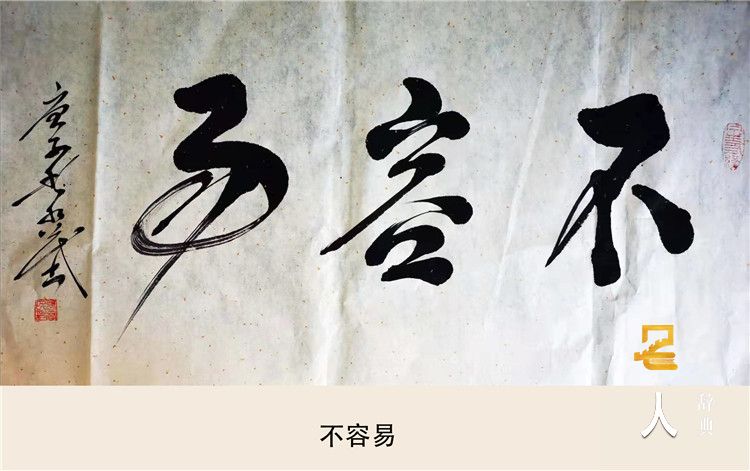 不容易
庚子
不容易
名人
辞典